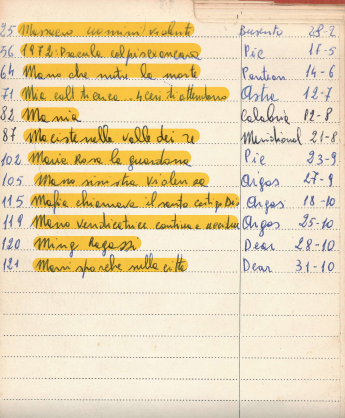 25 Massacro uomini violenti Busento 28-2
56 1972: Dracula colpisce ancora Pic 17-5
64 Mano che nutre la morte Pantron 14-6
71 Mia colt ti cerca.. 4 ceri ti attendono Astra 12-7
82 Mania Calabria 12-8
87 Maciste nella valle dei re Meridional 21-8
102 Maria Rosa la guardona Pic 23-9
105 Mano sinistra violenza Argos 27-9
115 Mafia chiamava il santo Argos 18-10
119 Mano vendicatrice continua a Argos 25-10
120 Ming Ragazzi Dear 28-10
121 Mani sporche sulla città Dear 31-10